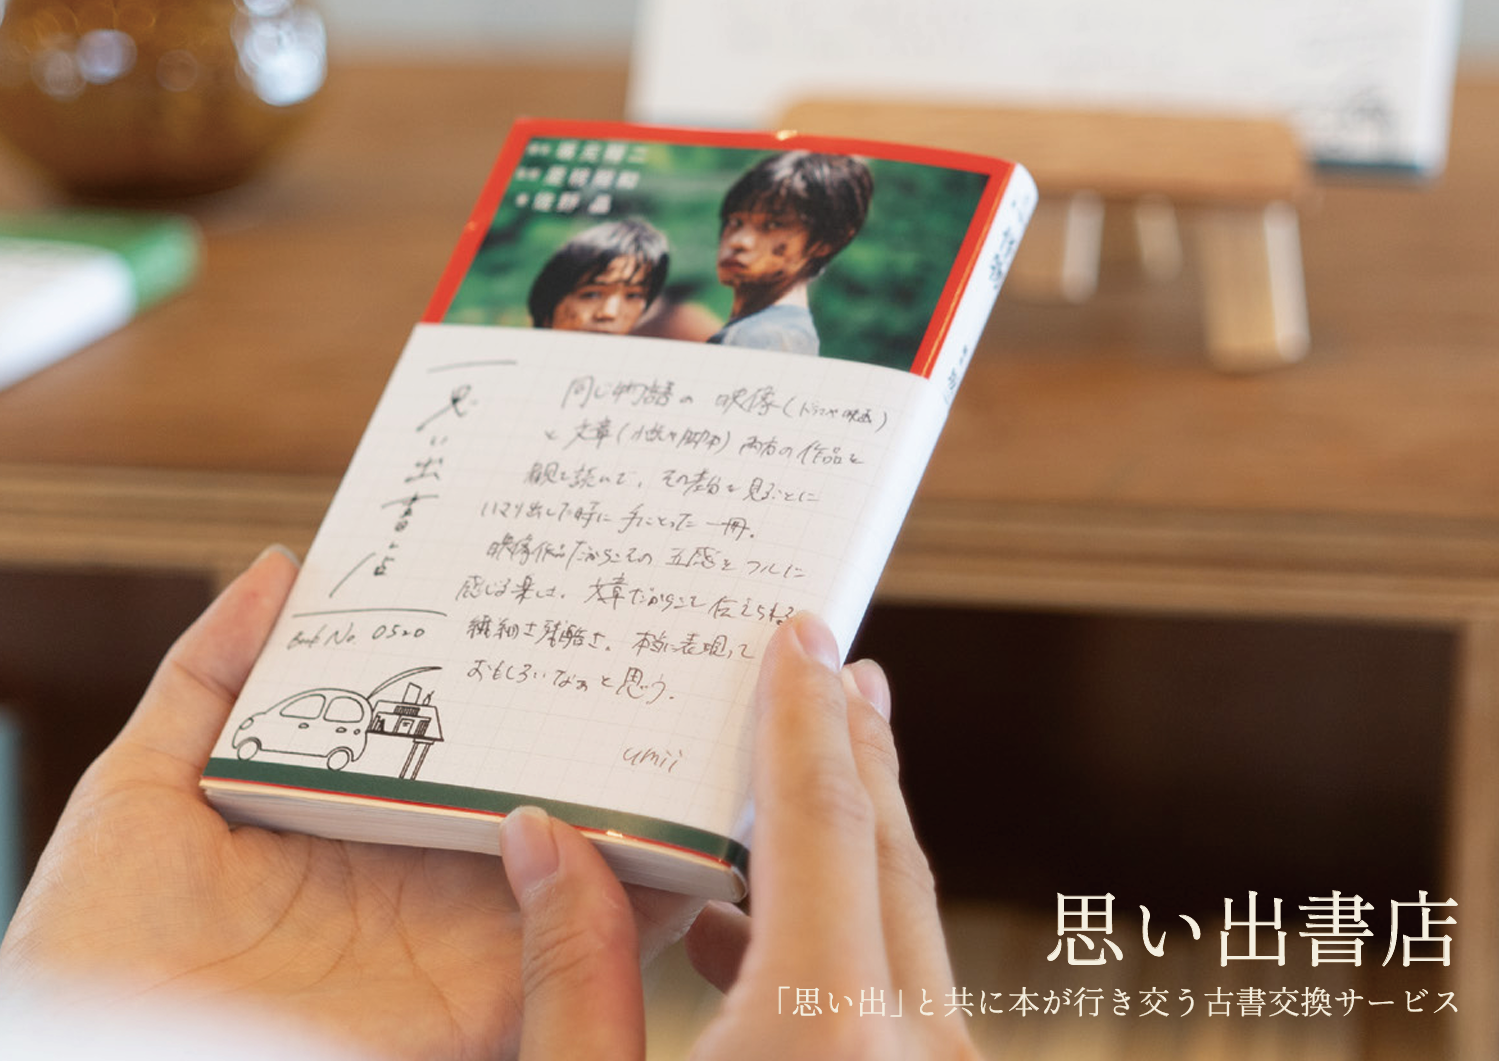 坂元裕二
是枝裕和
著 佐野 晶
思い出書店
Book No. 0520
同じ物語の 映像(ドラマや映画)
と 文章(小説や脚本) 両方の作品を
観て読いて、その差分を見ることに
いまり出した時に 手にとった一冊。
映像作品だからこその 五感をフルに
感じる楽しさ。文章だからこそ伝えられる
繊細さ残酷さ。本当に表現って
おもしろいなぁと思う。
umii
思い出書店
「思い出」と共に本が行き交う古書交換サービス